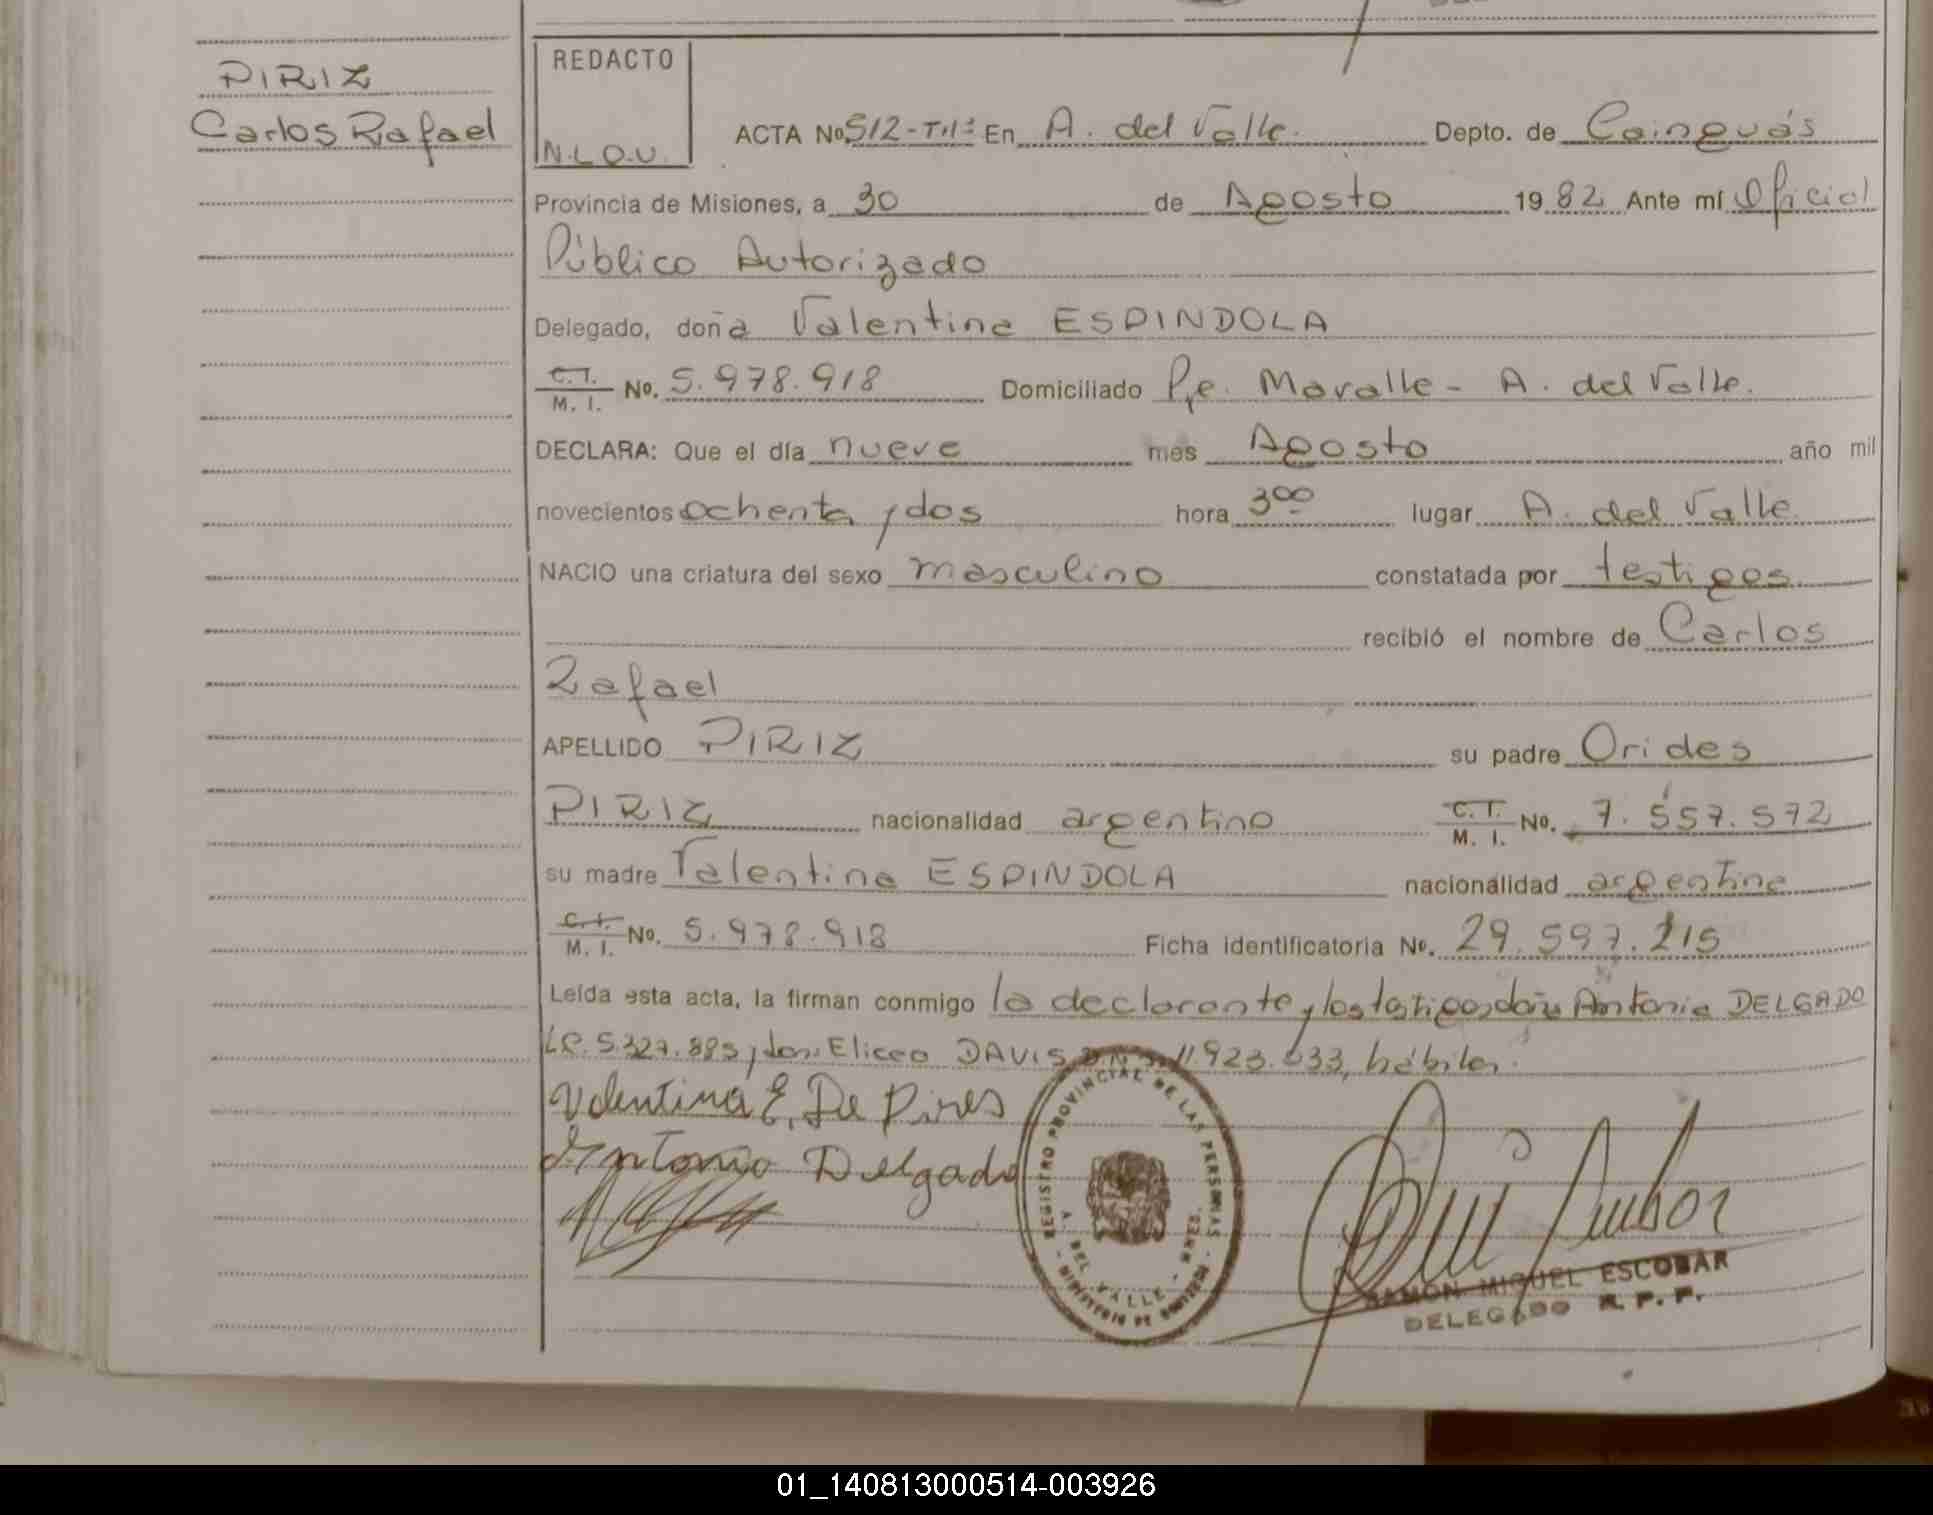 PIRIZ
Carlos Rafael
REDACTO
N.L.O.U.
ACTA No. 512-T.II= En A. del Valle. Depto. de Cainguás
Provincia de Misiones, a 30 de Agosto 19 82 Ante mí Oficial
Público Autorizado
Delegado, doña Valentina ESPINDOLA
C.I. M. I. No. 5.978.918 Domiciliado Pje. Maralle - A. del Valle.
DECLARA: Que el día nueve mes Agosto año mil
novecientos ochenta y dos hora 3 00 lugar A. del Valle
NACIO una criatura del sexo masculino constatada por testigos
recibió el nombre de Carlos
Rafael
APELLIDO PIRIZ su padre Orides
PIRIZ nacionalidad argentino C.I. M. I. No. 7.557.572
su madre Valentina ESPINDOLA nacionalidad argentina
C.I. M. I. No. 5.978.918 Ficha identificatoria No. 29.597.215
Leída esta acta, la firman conmigo la declarante y los testigos doña Antonia DELGADO
L.C. 5.327.885 y don Eliceo DAVIS D.N.I. 11.923.033, hábiles.
Valentina E. De Pires
Antonia Delgado
REGISTRO PROVINCIAL DE LAS PERSONAS
A. DEL VALLE - MNES.
- MINISTERIO DE GOBIERNO -
RAMON MIGUEL ESCOBAR
DELEGADO R. P. P.
01_140813000514-003926